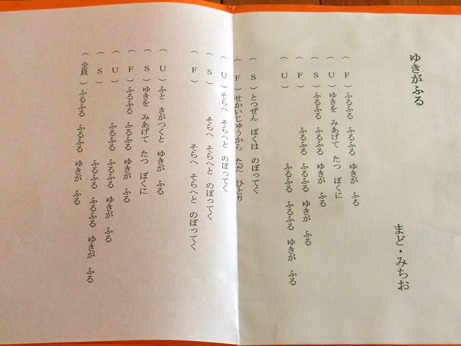 ゆきがふる
まど・みちお
(F) ふるふる ふるふる ゆきが ふる
(U) ゆきを みあげて たつ ぼくに
(S) ふるふる ふるふる ゆきが ふる
(F) ふるふる ふるふる ゆきが ふる
(U) ふるふる ふるふる ゆきが ふる
(S) とつぜん ぼくは のぼってく
(F) せかいじゅうから ただ ひとり
(U) そらへ そらへと のぼってく
(S) そらへ そらへと のぼってく
(F) そらへ そらへと のぼってく
(U) ふと きがつくと ゆきが ふる
(S) ゆきを みあげて たつ ぼくに
(F) ふるふる ふるふる ゆきが ふる
(U) ふるふる ふるふる ゆきが ふる
(S) ふるふる ふるふる ゆきが ふる
(全員) ふるふる ふるふる ゆきが ふる